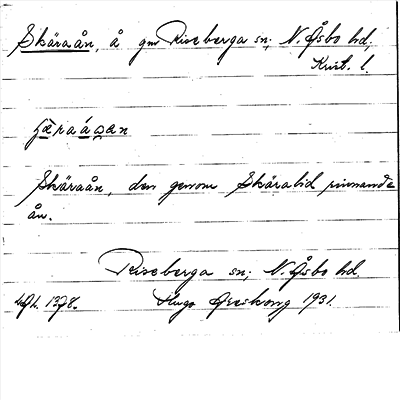 Skäraån, å gm Riseberga sn; N. Åsbo hd,
Krist. l.
Skäraån, den genom Skäralid rinnande
ån.
Riseberga sn; N. Åsbo hd.
Hugo Areskoug 1931.